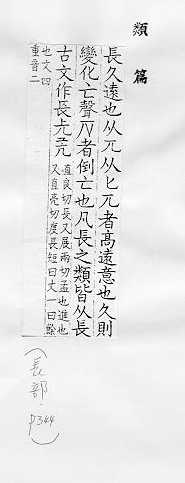 類篇
長久遠也从兀从匕兀者髙遠意也久則
變化亡聲者倒亡也凡長之類皆从長
古文作
直良切長又展兩切孟也進也
又直亮切度長短曰丈一曰餘
也文四
重音二
(長部. P344)